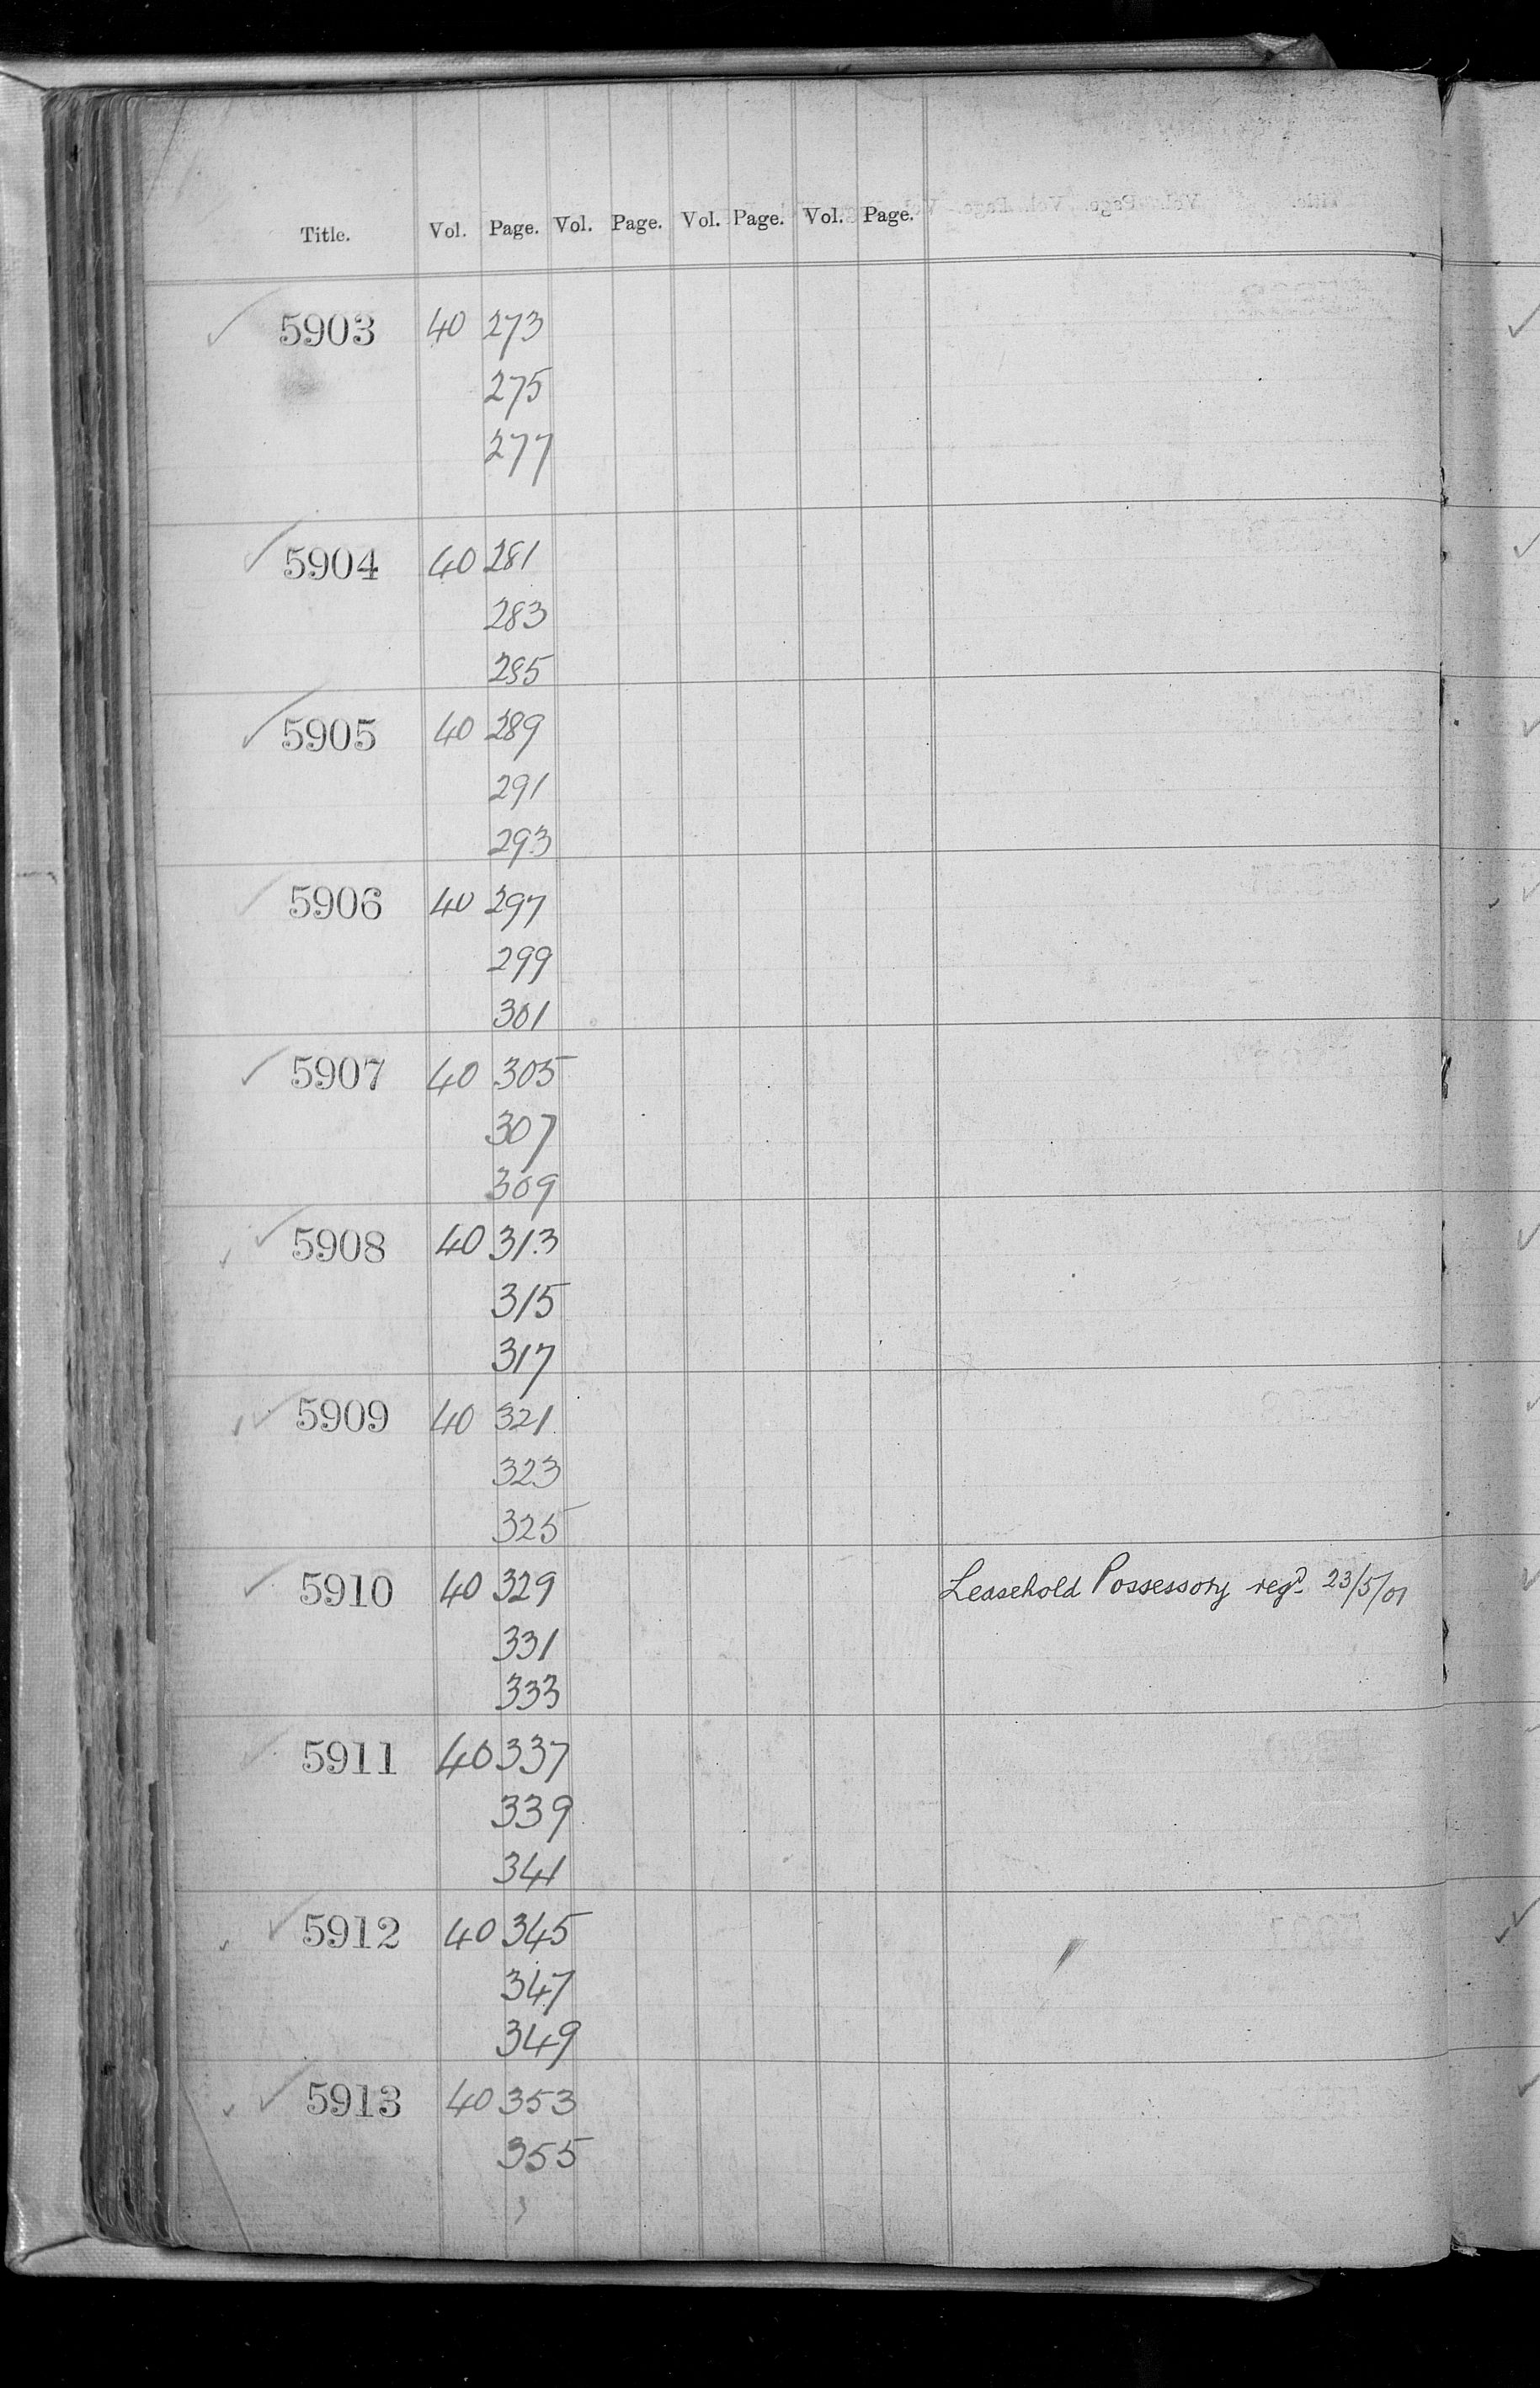 Title. Vol. Page. Vol. Page. Vol. Page. Vol. Page.
5903 40 273
275
277
5904 40 281
283
285
5905 40 289
291
293
5906 40 297
299
301
5907 40 305
307
309
5908 40 313
315
317
5909 40 321
323
325
5910 40 329 Leasehold Possessory regd 23/5/01
331
333
5911 40 337
339
341
5912 40 345
347
349
5913 40 353
355